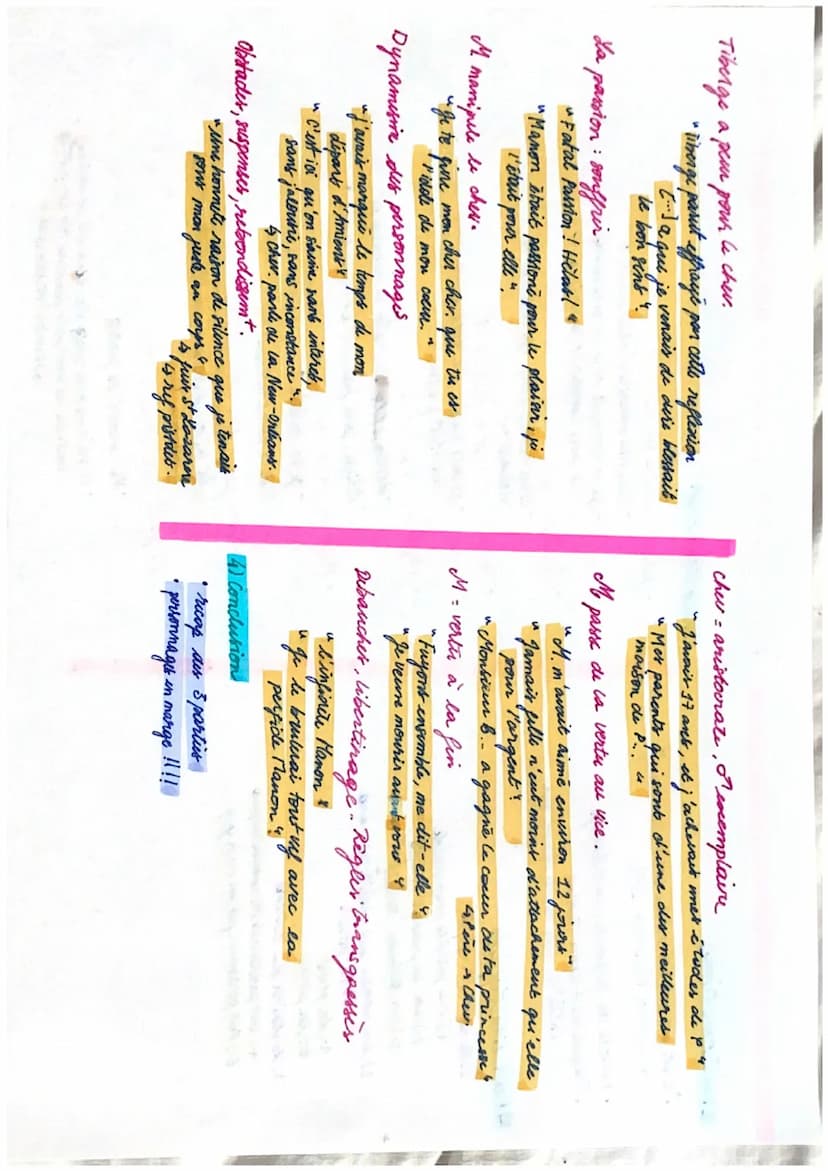 Tiberge a peur pour le chev.
"Tiberge parut effrayé par cette reflexion
(...) à que je venais de dire blessait
le bon sens".
La passion : souffrir
"Fatal Passion! Hélas!"
"Manon était passioné pour le plaisir, je
l'était pour elle."
M manipule le chev.
"Je te jure mon cher chev. que tu es
l'idole de mon coeur."
Dynamisme des personnages
"j'avais marqué le temps de mon
départ d'Amiens"
"C'est ici qu'on s'aime sans intérêt,
sans jalousie, sans inconstance"
↳ chev. parle de la New-Orléans.
Obstacles, suspenses, rebondissemt.
"Une honnête raison de silence que je tenais
sous mon juste au corps"
↳ fuir St Lazarre
↳ réf pistolet.
chev = aristocrate, ♂ exemplaire
"J'avais 17 ans, et j'achevais mes études de P"
"Mes parents qui sont d'une des meilleures
maison de P..."
M passe de la vertu au vice.
"M. m'avait aimé environ 12 jours"
"Jamais fille n'eut moins d'attachement qu'elle
pour l'argent"
"Monsieur B... a gagné le coeur de ta princesse"
↳ Père → Chev
M = vertu à la fin
"Fuyons ensemble, me dit-elle"
"Je veux mourir avant vous"
Débauches, libertinage.. Règles transgressés
"L'infidèle Manon"
"Je le brulerai tout vif avec la
perfide Manon"
4) Conclusion
• récap des 3 parties
• personnages en marge !!!!